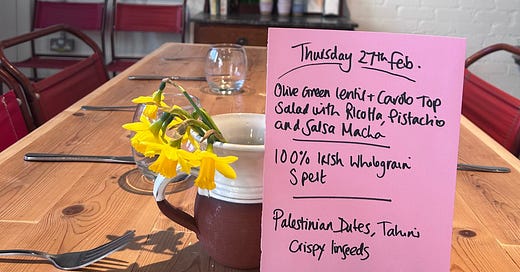 Thursday 27th Feb.
Olive Green lentil + Carrot Top
Salad with Ricotta, Pistachio
and Salsa Macha
100% Irish Wholegrain
Spelt
Palestinian Dates, Tahini
Crispy linseeds